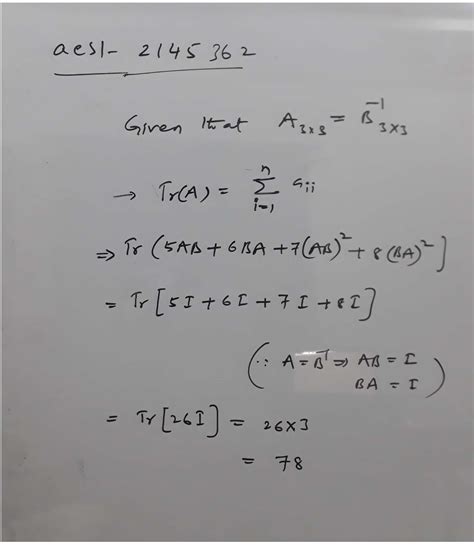 aesl- 2145362
Given that A₃ₓ₃ = B⁻¹₃ₓ₃
→ Tr(A) = ∑ⁿᵢ₌₁ aᵢᵢ
⇒ Tr (5AB + 6BA + 7(AB)² + 8(BA)²]
= Tr [5I + 6I + 7I + 8I]
(∵ A = B⁻¹ ⇒ AB = I
BA = I)
= Tr [26I] = 26×3
= 78